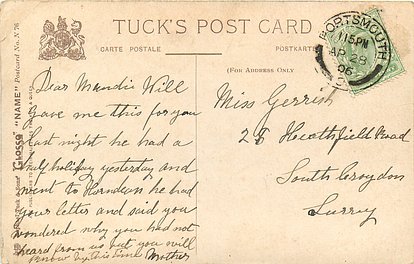 TUCK'S POST CARD
CARTE POSTALE
POSTKARTE
(FOR ADDRESS ONLY
PORTSMOUTH
115PM
AP 28
06
Glosso "NAME" Postcard No. N 76
Dear Mundie Will
Gave me this for you
last night he had a
half holiday yesterday and
went to Horndean he had
your letter and said you
wondered why you had not
heard from us but you will
know by this time Mother
Miss Gerrish
25 Heathfield Road
South Croydon
Surrey